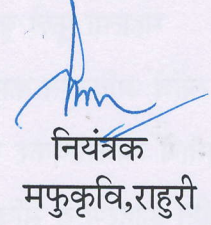 नियंत्रक
मफुकृवि,राहुरी